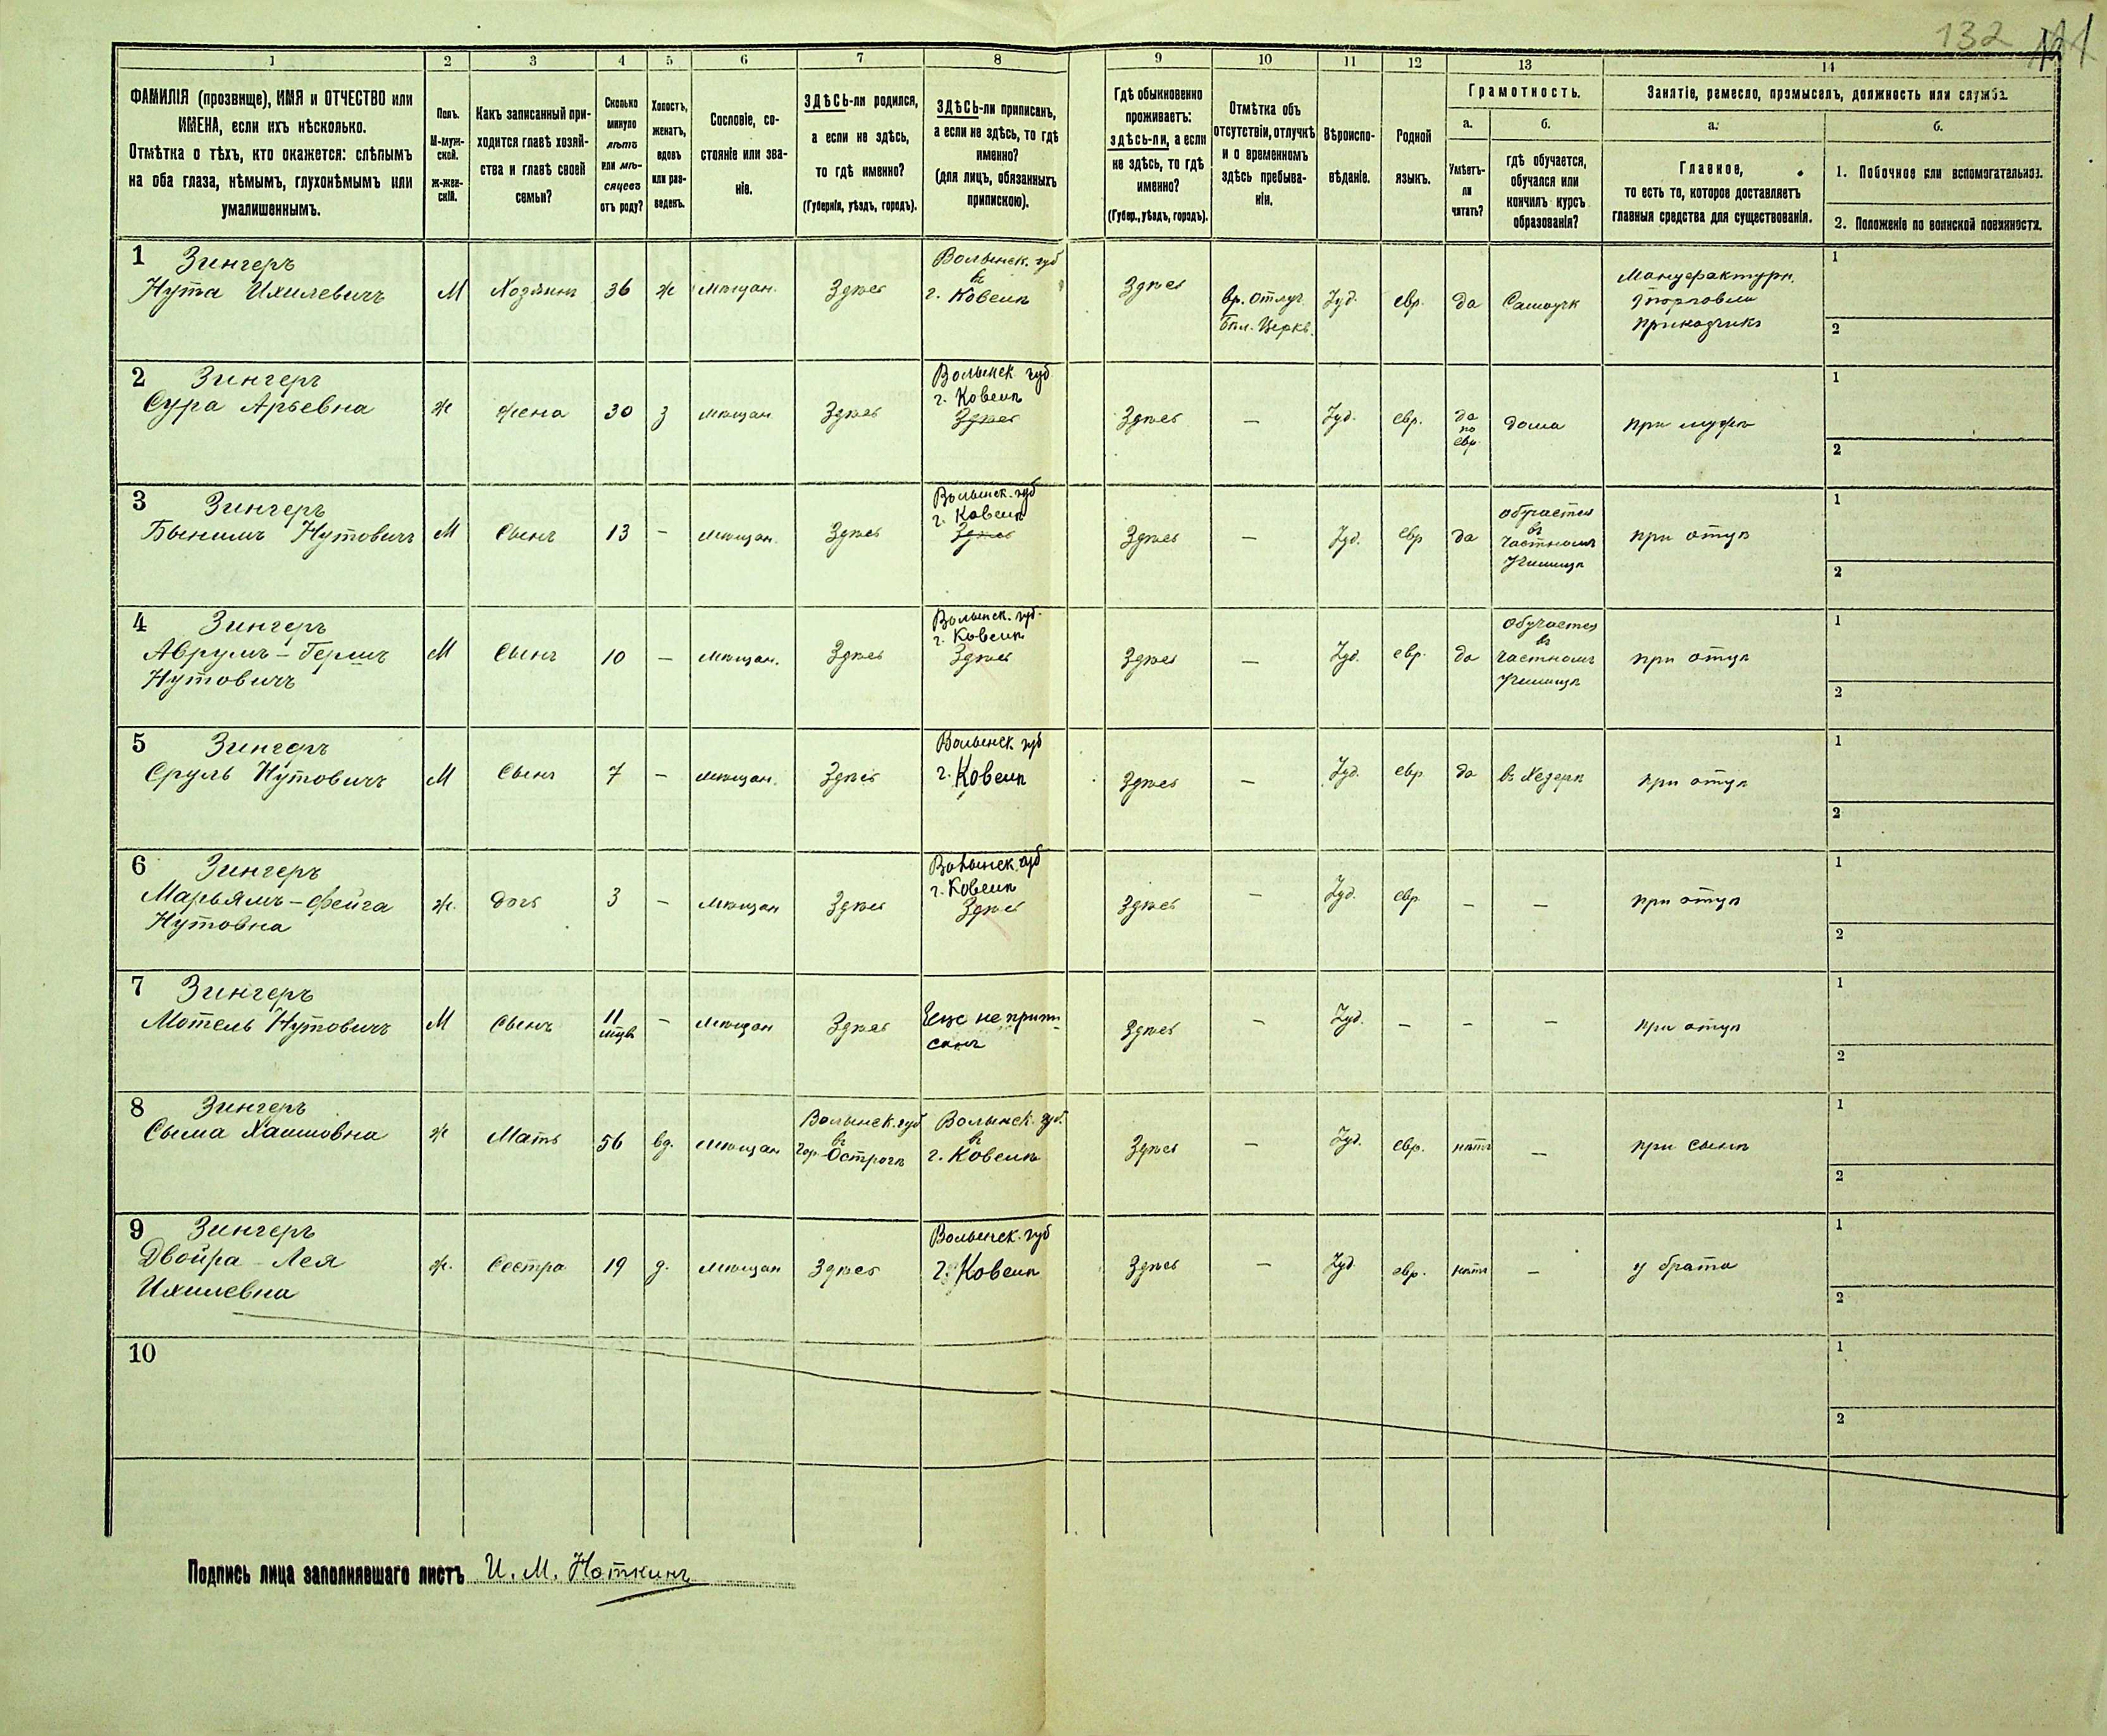 132
121
1 2 3 4 5 6 7 8 9 10 11 12 13 14
ФАМИЛІЯ (прозвище), ИМЯ и ОТЧЕСТВО или
ИМЕНА, если ихъ нѣсколько.
Отмѣтка о тѣхъ, кто окажется: слѣпымъ
на оба глаза, нѣмымъ, глухонѣмымъ или
умалишеннымъ.
Полъ.
М-муж-
ской.
ж-жен-
скій.
Какъ записанный при-
ходится главѣ хозяй-
ства и главѣ своей
семьи?
Сколько
минуло
лѣтъ
или мѣ-
сяцевъ
отъ роду?
Холостъ,
женатъ,
вдовъ
или раз-
веденъ.
Сословіе, со-
стояніе или зва-
ніе.
ЗДѢСЬ-ли родился,
а если не здѣсь,
то гдѣ именно?
(Губернія, уѣздъ, городъ).
ЗДѢСЬ-ли приписанъ,
а если не здѣсь, то гдѣ
именно?
(для лицъ, обязанныхъ
припискою).
Гдѣ обыкновенно
проживаетъ:
здѣсь-ли, а если
не здѣсь, то гдѣ
именно?
(Губер., уѣздъ, городъ).
Отмѣтка объ
отсутствіи, отлучкѣ
и о временномъ
здѣсь пребыва-
ніи.
Вѣроиспо-
вѣданіе.
Родной
языкъ.
Грамотность.
а.
Умѣетъ-
ли
читать?
б.
гдѣ обучается,
обучался или
кончилъ курсъ
образованія?
Занятіе, ремесло, промыселъ, должность или служба.
а.
Главное,
то есть то, которое доставляетъ
главныя средства для существованія.
б.
1. Побочное или вспомогательное.
2. Положеніе по воинской повинности.
1 Зингеръ
Нута Ихилевичъ
М
Хозяинъ
36
ж
мѣщан.
Здѣсь
Волынск. губ
въ
г. Ковелѣ
Здѣсь
вр. отлуч.
Бѣл. Церкв.
Іуд.
евр.
да
Самоучк
Мануфактурн.
торговли
приказчикъ
1
2
2 Зингеръ
Сура Арьевна
ж
жена
30
з
мѣщан
Здѣсь
Волынск. губ
г. Ковелѣ
Здѣсь
Здѣсь
—
Іуд.
евр.
да
по
евр.
дома
при мужѣ
1
2
3 Зингеръ
Бынимъ Нутовичъ
М
Сынъ
13
—
мѣщан.
Здѣсь
Волынск. губ
г. Ковелѣ
Здѣсь
Здѣсь
—
Іуд.
евр
да
обучается
въ
частномъ
училищѣ
при отцѣ
1
2
4 Зингеръ
Аврумъ-Гершъ
Нутовичъ
М
Сынъ
10
—
мѣщан.
Здѣсь
Волынск. губ.
г. Ковелѣ
Здѣсь
Здѣсь
—
Іуд.
евр.
да
обучается
въ
частномъ
училищѣ
при отцѣ
1
2
5 Зингеръ
Сруль Нутовичъ
М
Сынъ
7
—
мѣщан.
Здѣсь
Волынск. губ
г. Ковелѣ
Здѣсь
—
Іуд.
евр.
да
въ Хедерѣ
при отцѣ
1
2
6 Зингеръ
Марьямъ-Фейга
Нутовна
ж.
дочь
3
—
мѣщан
Здѣсь
Волынск. губ
г. Ковелѣ
Здѣсь
Здѣсь
—
Іуд.
евр.
—
—
при отцѣ
1
2
7 Зингеръ
Мотель Нутовичъ
М
Сынъ
11
мѣсяц
—
мѣщан
Здѣсь
Еще не припи-
санъ
Здѣсь
—
Іуд.
—
—
—
при отцѣ
1
2
8 Зингеръ
Сыма Хаимовна
ж
Мать
56
вд.
мѣщан
Волынск. губ
въ
гор. Острогѣ
Волынск. губ.
въ
г. Ковелѣ
Здѣсь
—
Іуд.
евр.
нѣтъ
—
при сынѣ
1
2
9 Зингеръ
Двойра-Лея
Ихилевна
ж.
Сестра
19
д.
мѣщан
Здѣсь
Волынск. губ
г. Ковелѣ
Здѣсь
—
Іуд.
евр.
нѣтъ
—
у брата
1
2
10
1
2
Подпись лица заполнявшаго листъ И. М. Ноткинъ